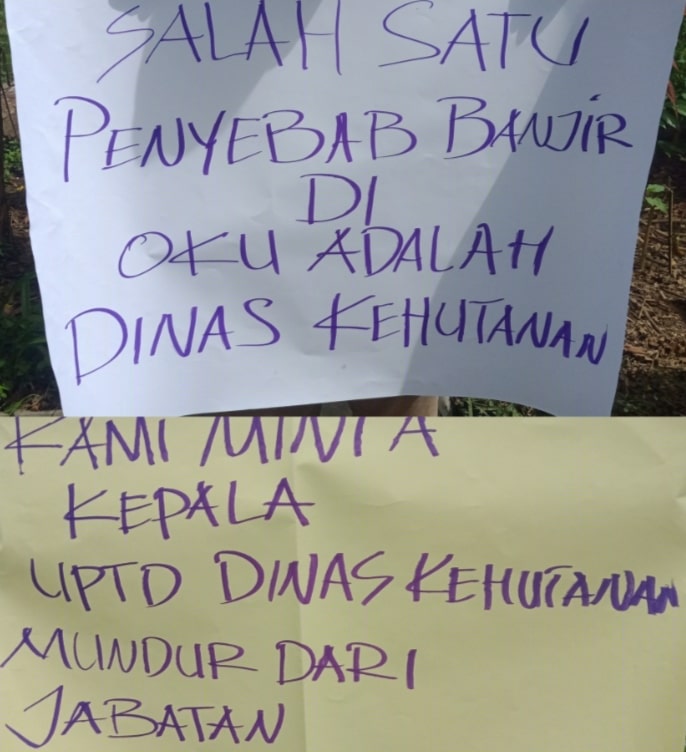 SALAH SATU
PENYEBAB BANJIR
DI
OKU ADALAH
DINAS KEHUTANAN
KAMI MINTA
KEPALA
UPTD DINAS KEHUTANAN
MUNDUR DARI
JABATAN